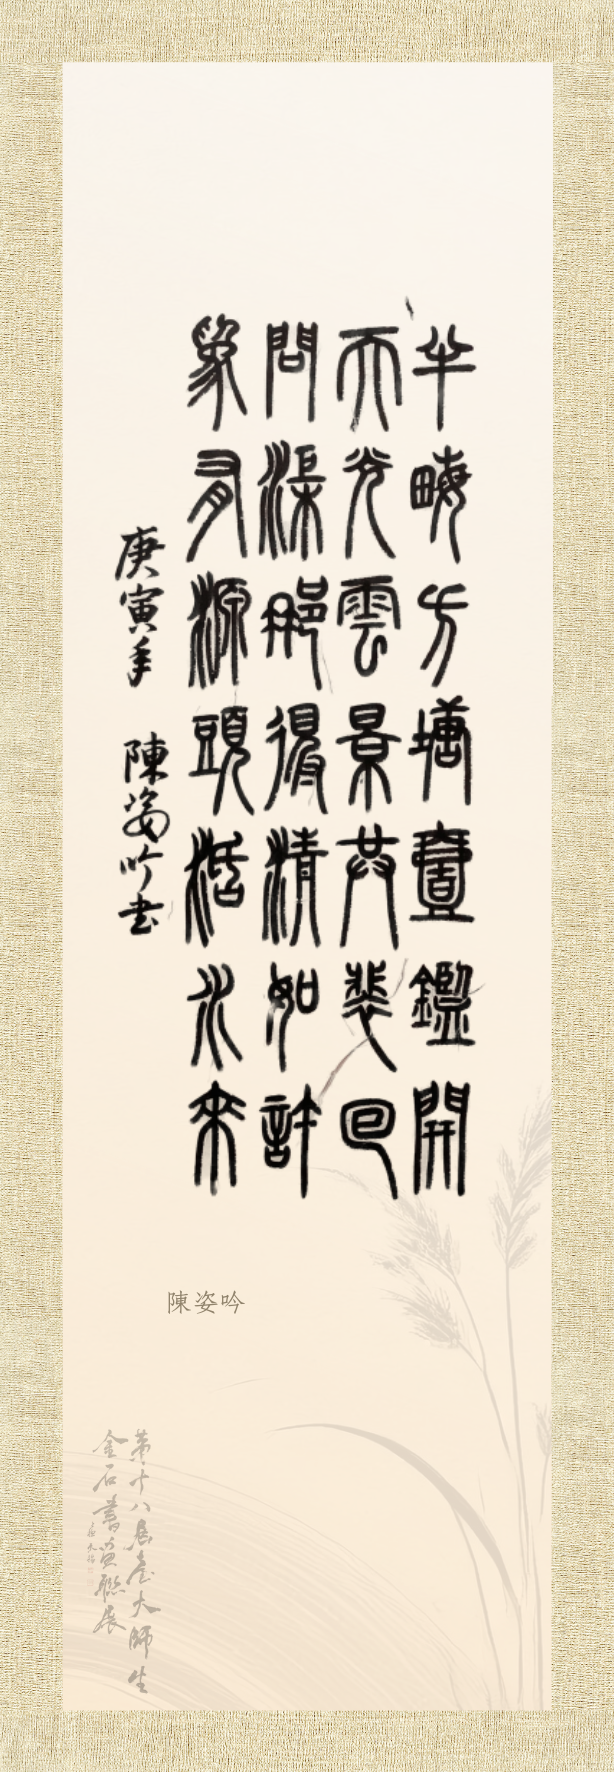 半畮方塘壹鑑開
天光雲景共裴回
問渠那得清如許
爲有源頭活水來
庚寅年 陳姿吟書
陳姿吟
第十八屆臺大師生
金石書畫聯展